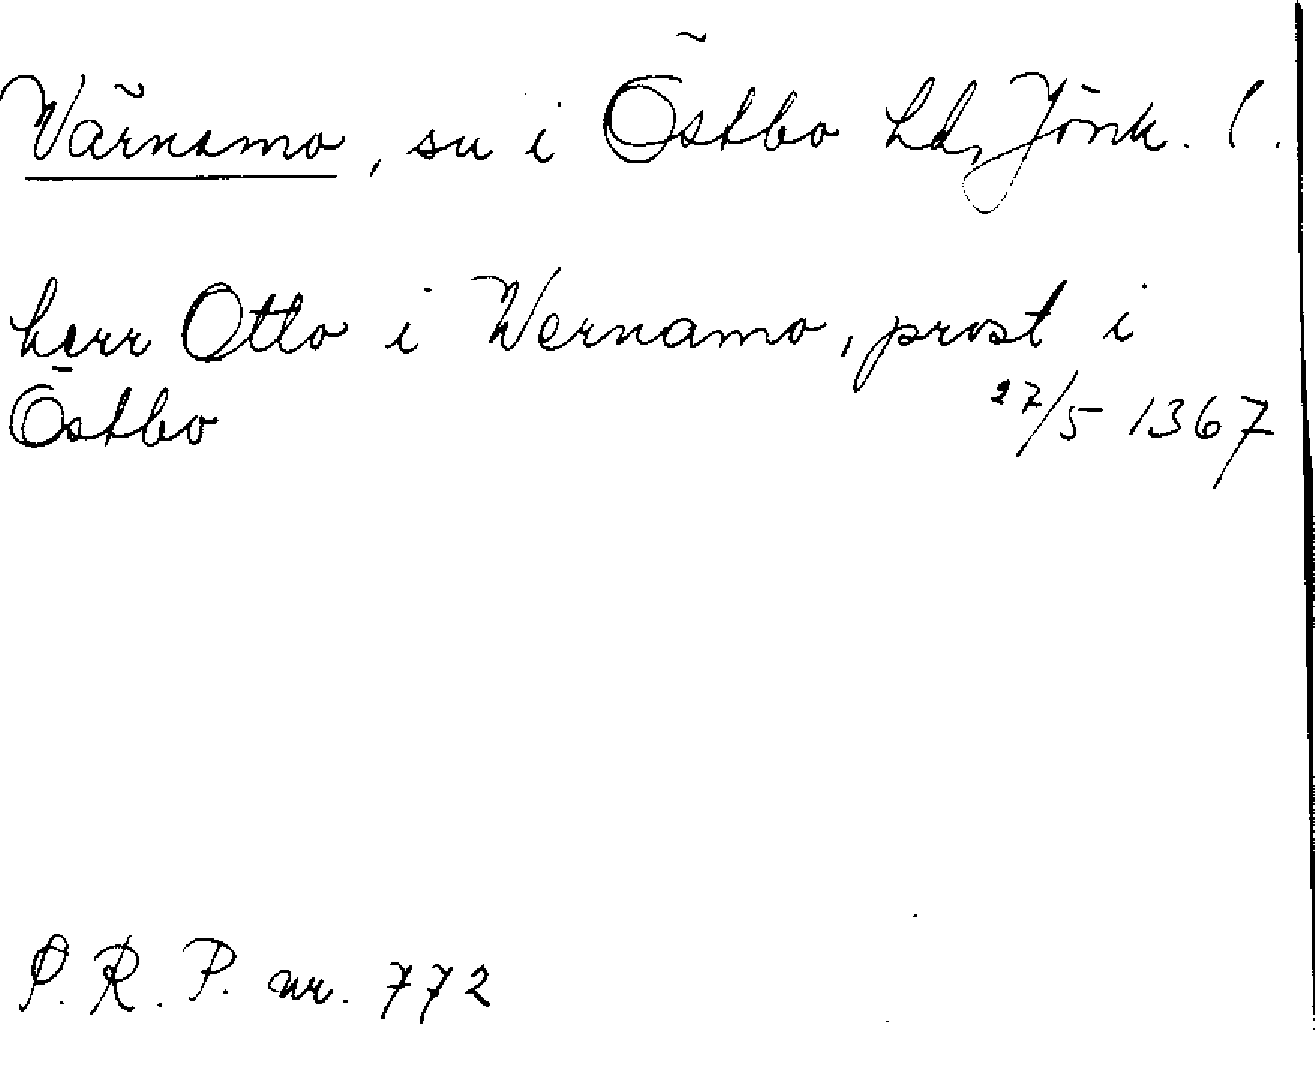 Värnamo, sn i Östbo hd, Jönk. l.
herr Otto i Wernamo, prost i
Östbo 27/5 1367
S. R. P. nr. 772